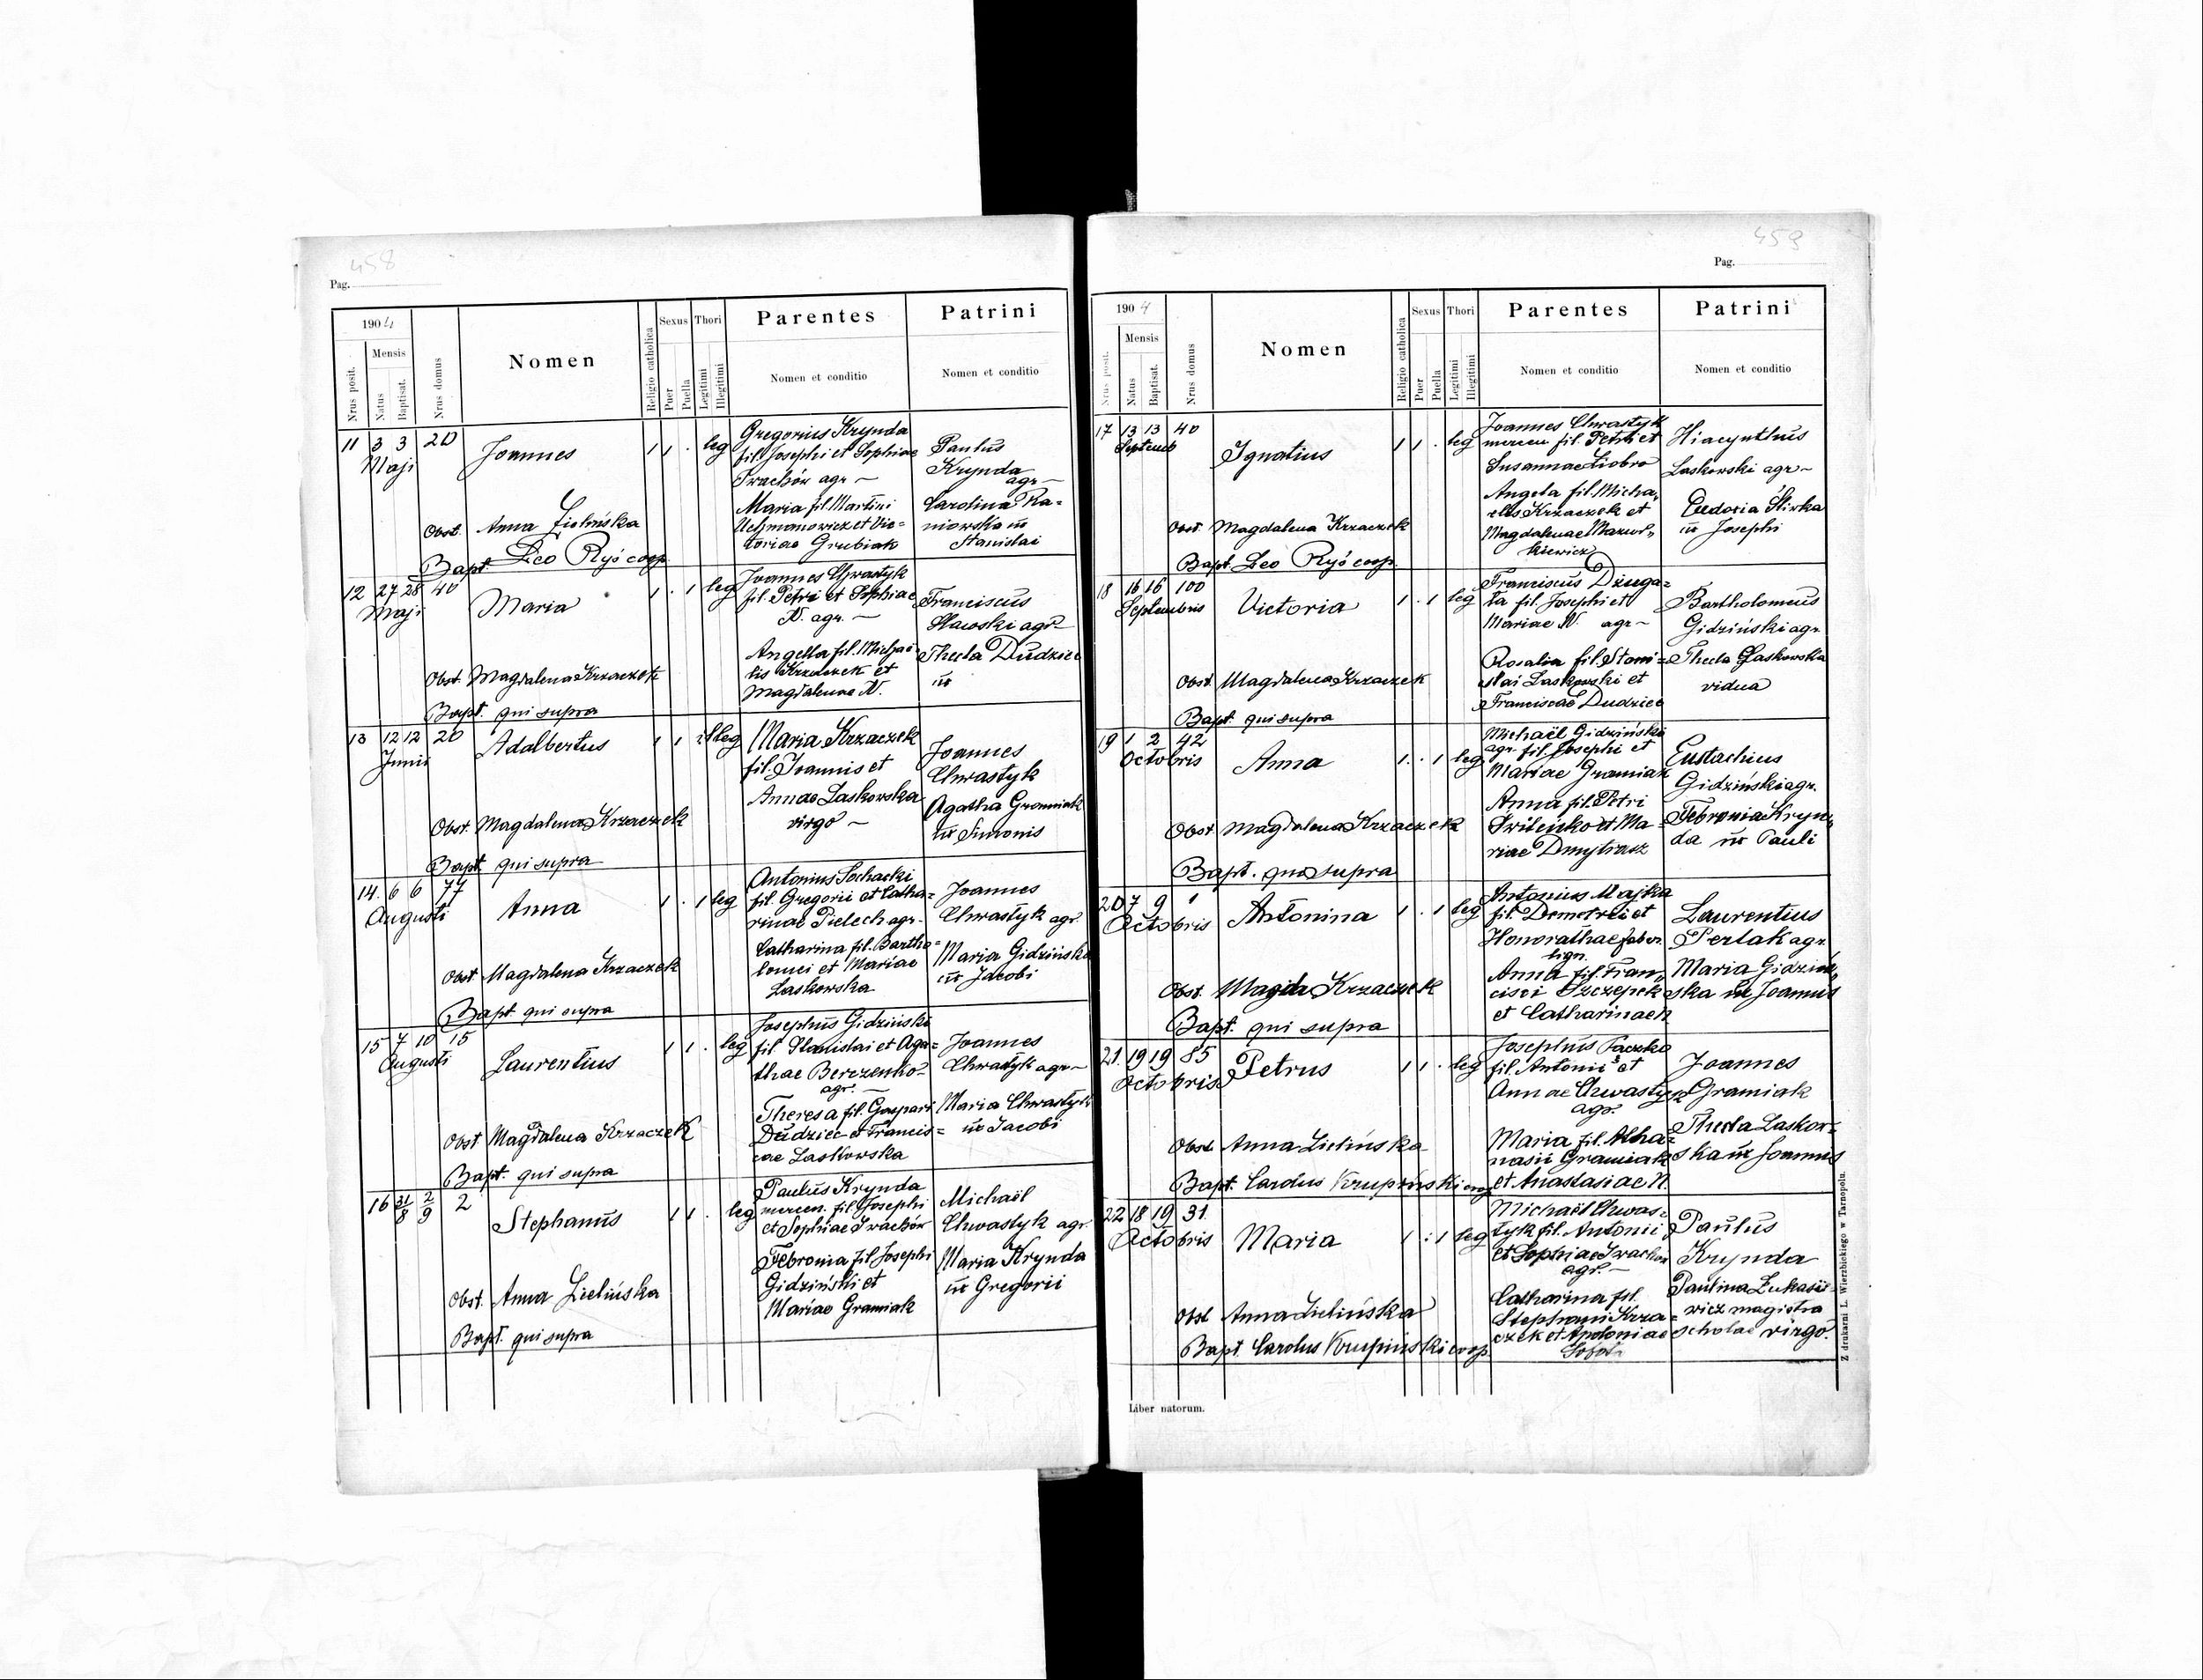 458
Pag.
1904
Nrus posit.
Mensis
Natus
Baptisat.
Nrus domus
Nomen
Religio catholica
Sexus
Puer
Puella
Thori
Legitimi
Illegitimi
Parentes
Nomen et conditio
Patrini
Nomen et conditio
11 3 3 20
Maji
Joannes
1 1 . leg
Gregorius Krynda
fil. Josephi et Sophiae
Iwachów agr —
Maria fil Martini
Uchmanowicz et Vic=
toriae Grubiak
Paulus
Krynda
agr —
Carolina Ra=
niowska ux
Stanislai
Obst. Anna Zielińska
Bapt. Leo Ryś coop
12 27 28 40
Maji
Maria
1 . 1 leg
Joannes Chwastyk
fil. Petri et Sophiae
N. agr. —
Angella fil. Michaë
lis Krzaczek et
Magdalenae N.
Franciscus
agr
Thecla Dudziec
ux
Obst. Magdalena Krzaczek
Bapt. qui supra
13 12 12 20
Junii
Adalbertus
1 1 . Illeg
Maria Krzaczek
fil. Joannis et
Annae Laskowska
virgo —
Joannes
Chwastyk
Agatha Gramiak
ux Simonis
Obst. Magdalena Krzaczek
Bapt qui supra
14. 6 6 77
Augusti
Anna
1 . 1 leg
Antonius Sochacki
fil. Gregorii et Catha=
rinae Pielech agr.
Catharina fil. Bartho=
lomei et Mariae
Laskowska
Joannes
Chwastyk agr.
Maria Gidzińska
ux Jacobi
Obst. Magdalena Krzaczek
Bapt. qui supra
15 7 10 15
Augusti
Laurentius
1 1 . leg
Josephus Gidziński
fil Stanislai et Aga=
thae Berezenko
agr. —
Theresa fil. Gaspari
Dudziec et Francis=
cae Laskowska
Joannes
Chwastyk agr —
Maria Chwastyk
ux Jacobi
Obst. Magdalena Krzaczek
Bapt. qui supra
16 31/8 2/9 2
Stephanus
1 1 . leg
Paulus Krynda
mercen. fil. Josephi
et Sophiae Iwachów
Febronia fil Josephi
Gidziński et
Mariae Gramiak
Michaël
Chwastyk agr.
Maria Krynda
ux Gregorii
Obst. Anna Zielińska
Bapt. qui supra
459
Pag.
1904
Nrus posit.
Mensis
Natus
Baptisat.
Nrus domus
Nomen
Religio catholica
Sexus
Puer
Puella
Thori
Legitimi
Illegitimi
Parentes
Nomen et conditio
Patrini
Nomen et conditio
17 13 13 40
Septemb
Ignatius
1 1 . leg
Joannes Chwastyk
mercen fil. Petri et
Susannae Ziobro
Angela fil. Micha=
elis Krzaczek et
Magdalenae Mazur=
kiewicz
Hiacynthus
Laskowski agr —
Eudoxia
ux Josephi
Obst. Magdalena Krzaczek
Bapt. Leo Ryś coop
18 16 16 100
Septembris
Victoria
1 . 1 leg
Franciscus Dziuga=
ta fil. Josephi et
Mariae N. agr —
Rosalia fil. Stani=
slai Laskowski et
Franciscae Dudziec
Bartholomeus
Gidziński agr.
Thecla Laskowska
vidua
Obst. Magdalena Krzaczek
Bapt qui supra
19 1 2 42
Octobris
Anna
1 . 1 leg
Michaël Gidziński
agr. fil. Josephi et
Mariae Gramiak
Anna fil. Petri
et Ma=
riae Dmytrasz
Eustachius
Gidziński agr.
Febronia Kryn=
da ux Pauli
Obst Magdalena Krzaczek
Bapt. qui supra
20 7 9
Octobris
Antonina
1 . 1 leg
Antonius Majka
fil. Demetrii et
Honorathae faber
lign.
Anna fil. Fran=
cisci Szczepek
et Catharinae N
Laurentius
Perlak agr.
Maria Gidziń=
ska ux Joannis
Obst. Magda Krzaczek
Bapt. qui supra
21. 19 19 85
Octobris
Petrus
1 1 . leg
Josephus Paczko
fil Antonii et
Annae Chwastyk
agr.
Maria fil. Atha=
nasii Gramiak
et Anastasiae N.
Joannes
Gramiak
Thecla Laskow=
ska ux Joannis
Obst. Anna Zielińska
Bapt. Carolus Krupiński coop
22 18 19 31.
Octobris
Maria
1 . 1 leg
Michaël Chwas=
tyk fil. Antonii
et Sophiae Iwachów
agr. —
Catharina fil.
Stephani Krza=
czek et Apoloniae
Paulus
Krynda
Paulina Łukasie=
wicz magistra
scholae virgo.
Obst Anna Zielińska
Bapt. Carolus Krupiński coop
Liber natorum.
Z drukarni L. Wierzbickiego w Tarnopolu.